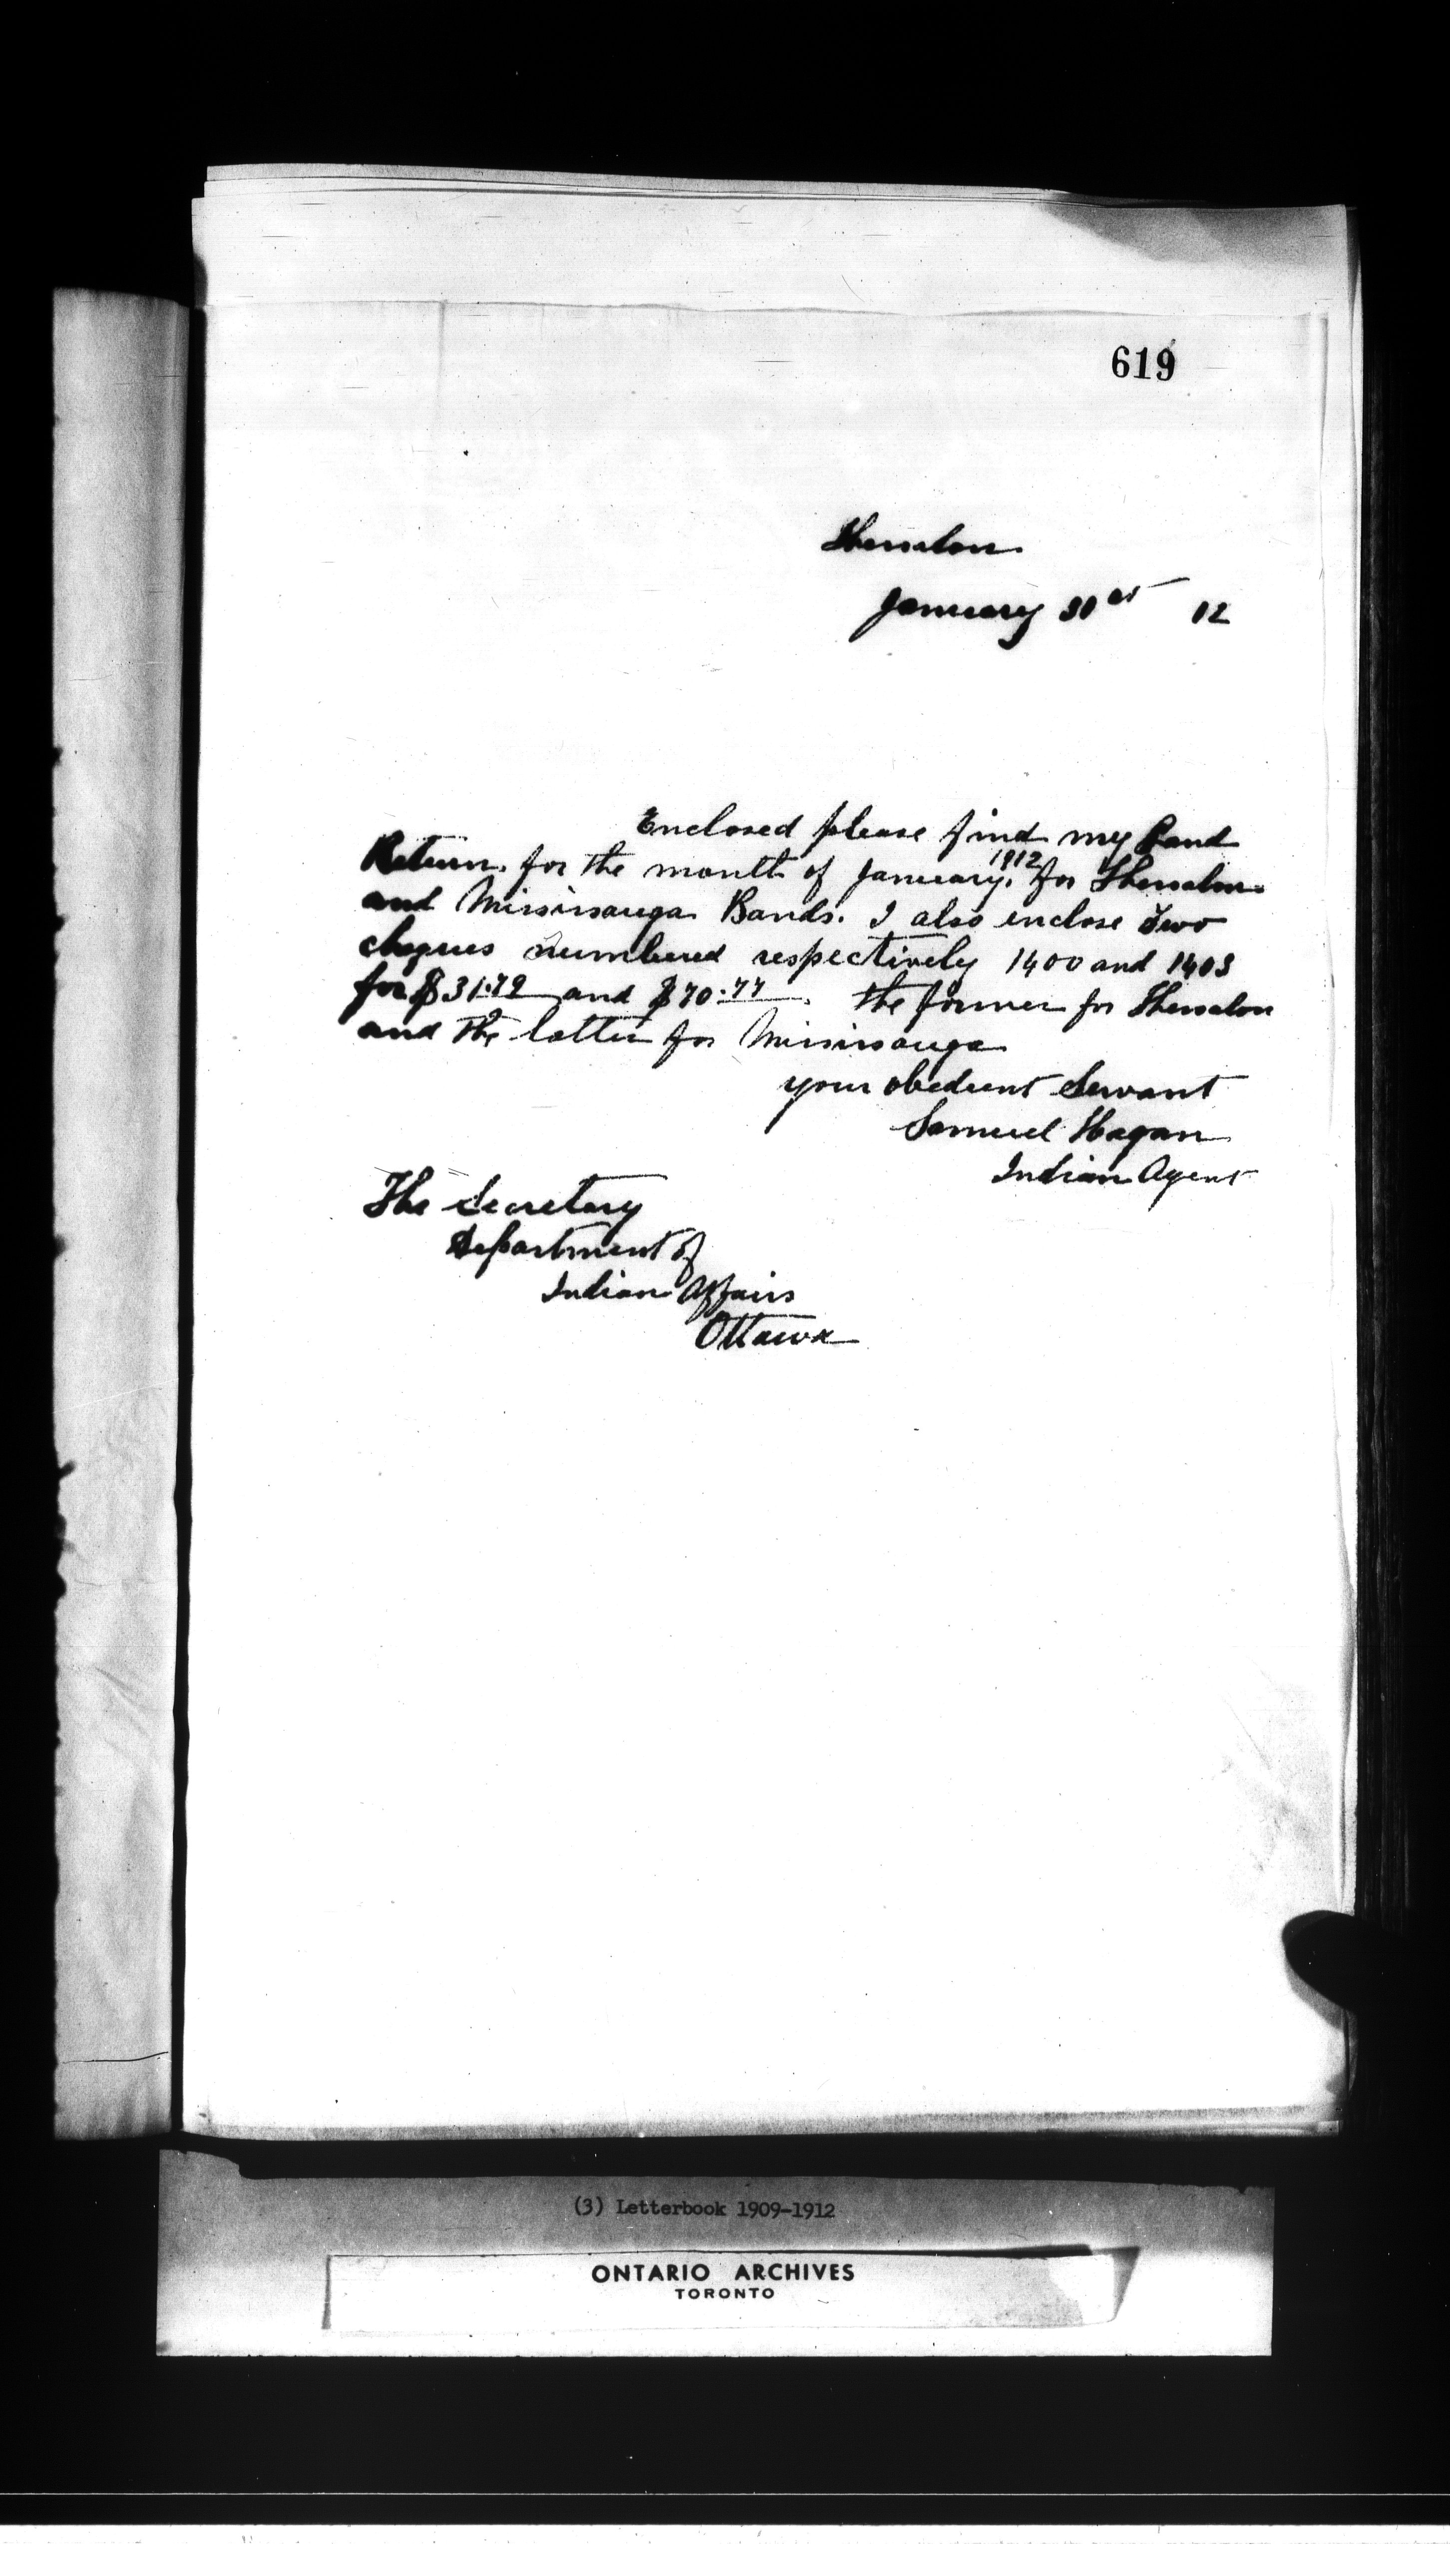 619
Thessalon
January 31st 12
Enclosed please find my Land
Return. for the month of January. 1912 for Thessalon
and Mississauga Bands. I also enclose Two
cheques numbered respectively 1400 and 1403
for $31.72 and $70.77. the former for Thessalon
and the latter for Mississauga
your obedient Servant
Samuel Hagan
Indian Agent
The Secretary
Department of
Indian Affairs
Ottawa
(3) Letterbook 1909-1912
ONTARIO ARCHIVES
TORONTO